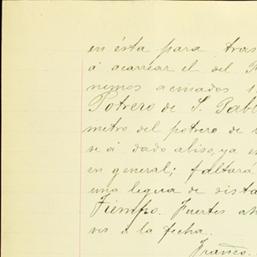 en ésta para tras
á acarrear el del P
nemos acinados 1
Potrero de S. Pabl
metro del potrero de
se á dado abiso, ya
en general; faltará
una legua de dista
Tiempo. Fuertes
vos á la fecha.
Franco.